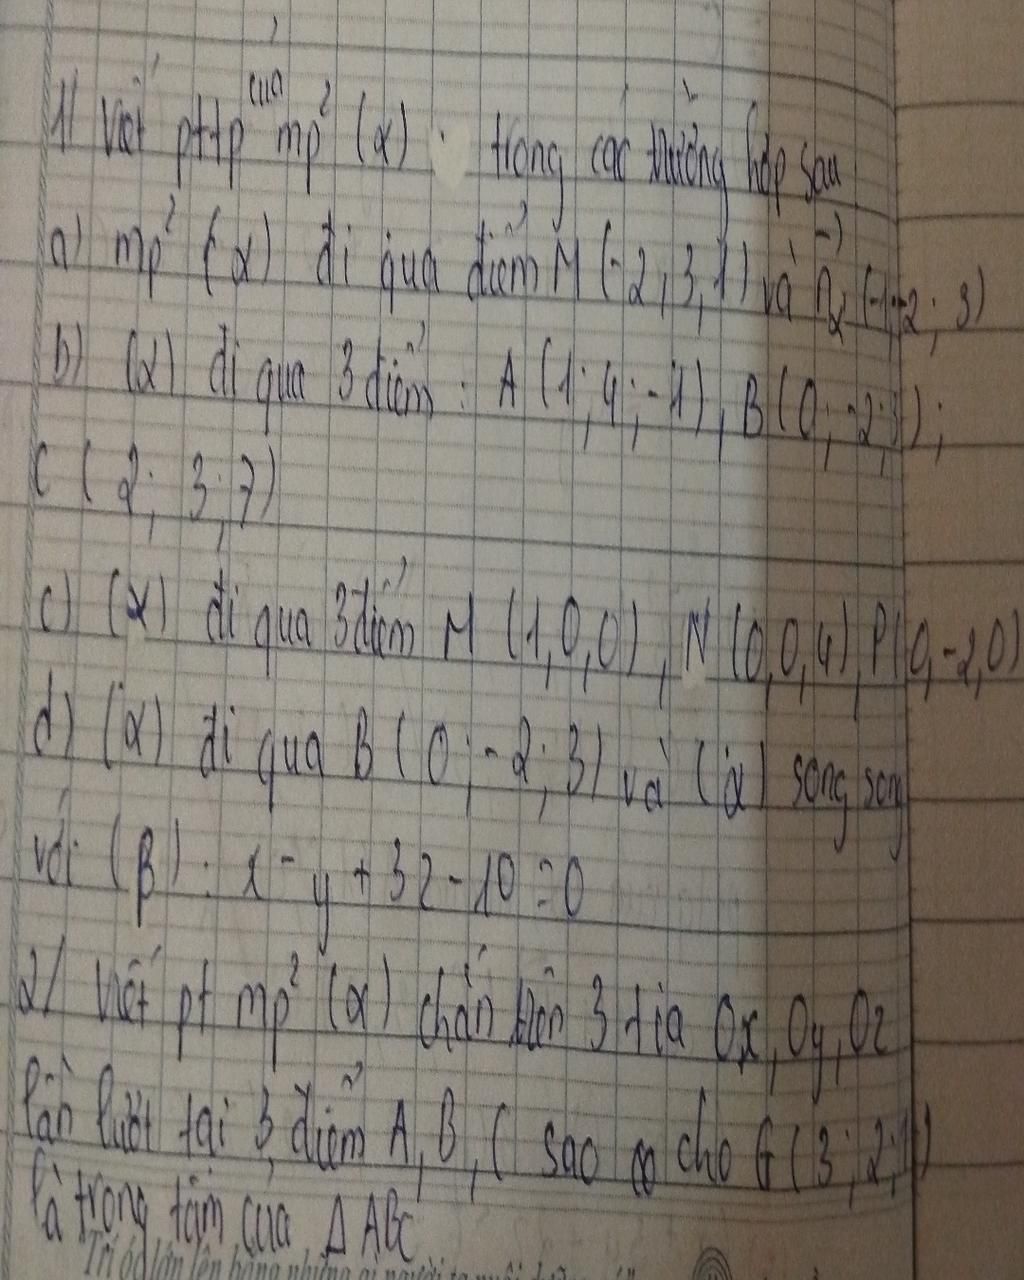 1/ Viết pttp của mp² (α) trong các trường hợp sau
a) mp² (α) đi qua điểm M (-2, 3, 1) và n⃗α (-1; -2; 3)
b) (α) đi qua 3 điểm : A (1; 4; -1), B (0; -2; 3);
C (2; 3; 7)
c) (α) đi qua 3 điểm M (1,0,0), N (0,0,4), P(0,-2,0)
d) (α) đi qua B (0; -2; 3) và (α) song song
với (β) : x - y + 3z - 10 = 0
2/ Viết pt mp² (α) chắn trên 3 tia Ox, Oy, Oz
lần lượt tại 3 điểm A, B, C sao cho G (3; 2; 1)
là trọng tâm của Δ ABC
Trí óc lớn lên bằng những gì